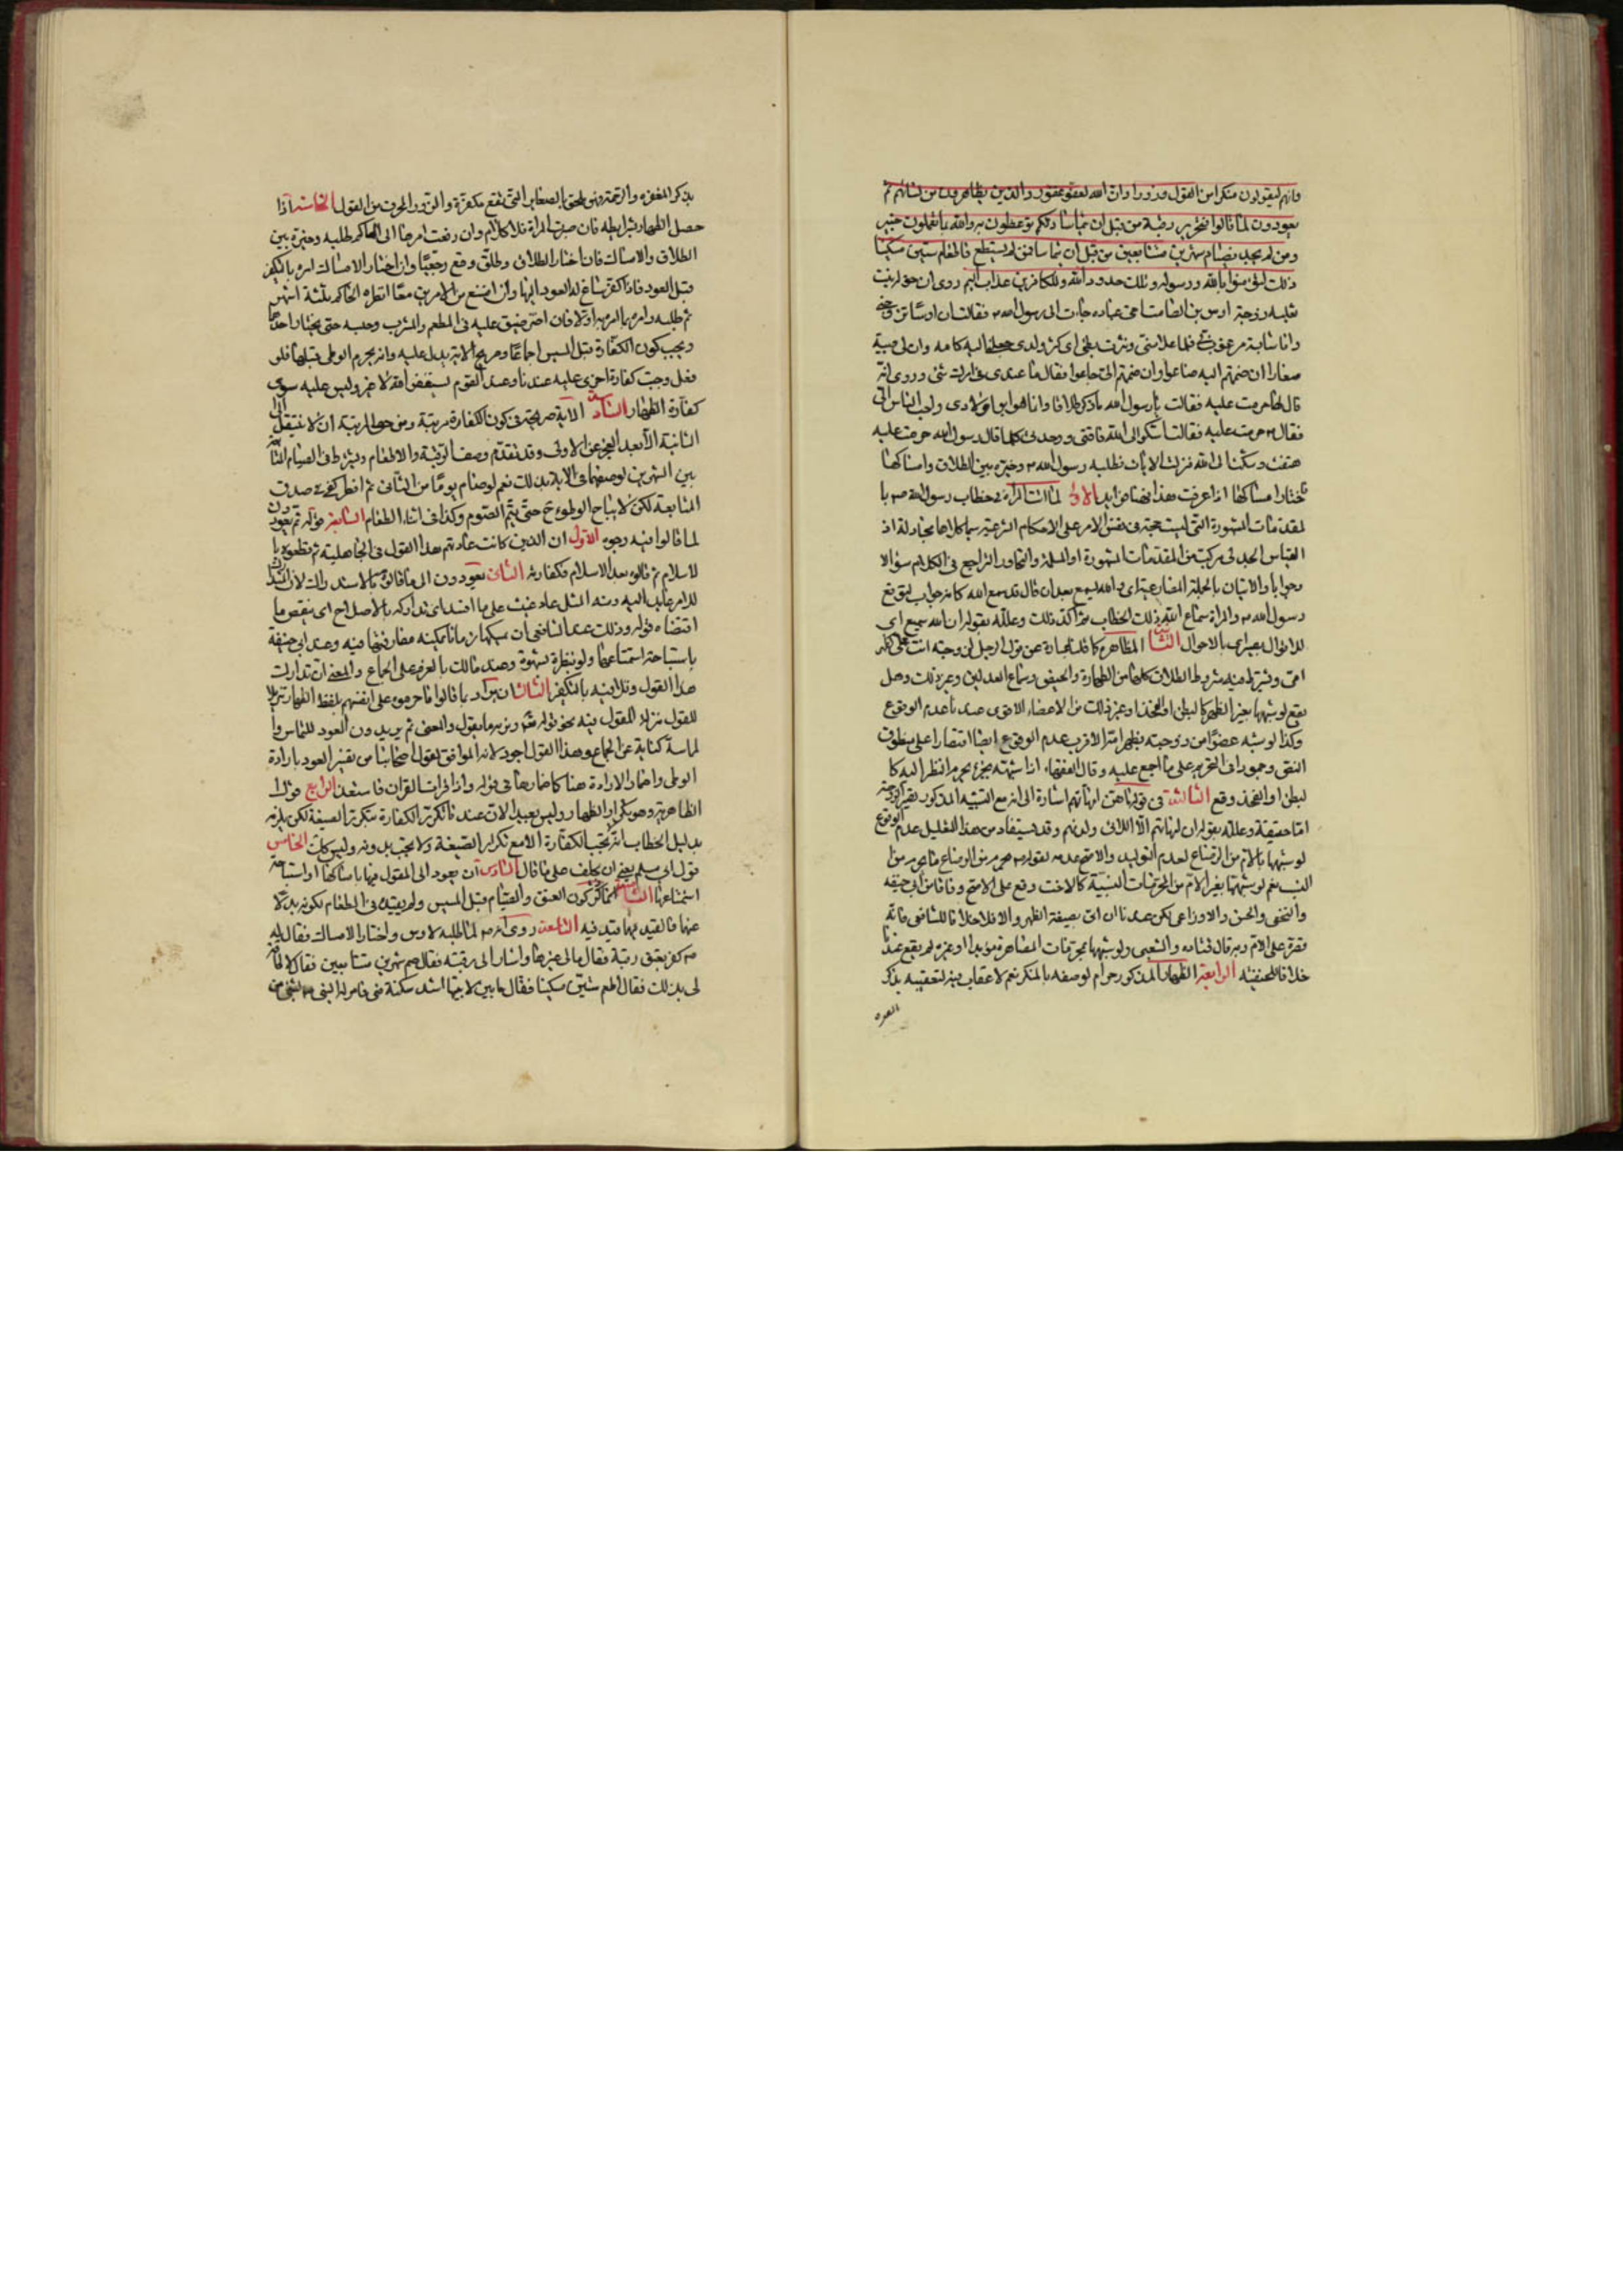 وانهم ليقولون منكرا من القول وزورا وان الله لعفو غفور والذين يظاهرون من نسائهم ثم
يعودون لما قالوا فتحرير رقبة من قبل ان يتماسا ذلكم توعظون به والله بما تعملون خبير
ومن لم يجد فصيام شهرين متتابعين من قبل ان يتماسا فمن لم يستطع فاطعام ستين مسكينا
ذلك لتؤمنوا بالله ورسوله وتلك حدود الله وللكافرين عذاب اليم روى ان خولة بنت
ثعلبة زوجة اوس بن الصامت اخى عباده جاءت الى رسول الله ص فقالت ان اوسا تزوجنى
وانا شابة مرغوب فى فلما علا سنى ونثرت بطنى اى كثر ولدى جعلنى اليه كامه وان لى صبية
صغارا ان ضممتهم اليه ضاعوا وان ضممتهم الى جاعوا فقال ما عندى فى امرك شئ وروى انه
قال لها حرمت عليه فقالت يا رسول الله ما ذكر طلاقا وانما هو ابو اولادى واحب الناس الى
فقال ص حرمت عليه فقالت اشكو الى الله فاقتى ووجدى كلما قال رسول الله حرمت عليه
هتفت وشكت الى الله فنزلت الايات فطلبه رسول الله ص وخيره بين الطلاق وامساكها
فاختار امساكها اذا عرفت هذا فهنا فوايد الاولى لما كانت المراة فى خطاب رسول الله ص با
لمقدمات المشهورة التى ليست حجة فى نفس الامر على الاحكام الشرعية سما كلاهما مجادلة اذ
القياس الجدلى مركب من المقدمات المشهورة او المسلمة والتحاور التراجع فى الكلام سؤالا
وجوابا والاتيان بالجملة المضارعية اى والله يسمع بعد ان قال قد سمع الله كانه جواب لتوقع
رسول الله ص والمراة سماع الله ذلك الخطاب ثم اكد ذلك وعلله بقوله ان الله سميع اى
للاقوال بصير اى بالاحوال الثانية المظاهرة كما قلنا عبارة عن قول الرجل لزوجته انت على كظهر
امى ويشترط فيه شروط الطلاق كلها من الطهارة والحيض وسماع العدلين وغير ذلك وهل
يقع لو شبهها بغير الظهر كالبطن او الفخذ او غير ذلك من الاعضاء الاقوى عندنا عدم الوقوع
وكذا لو شبه عضوا من زوجته بظهر امه الاقرب عدم الوقوع ايضا اقتصارا على منطوق
النص وجمودا فى التحريم على ما اجمع عليه وقال الفقهاء اذا شبهه بجزء يحرم النظر اليه كا
لبطن او الفخذ وقع الثالثة فى قوله ما هن امهاتهم اشارة الى انه مع التشبيه المذكور لا تصير الزوجة
اما حقيقة وعلله بقوله ان امهاتهم الا اللائى ولدنهم وقد يستفاد من هذا التعليل عدم الوقوع
لو شبهها بالام من الرضاع لعدم التوليد والاصح عدمه لقوله ص يحرم من الرضاع ما يحرم من
النسب نعم لو شبهها بغير الام من المحرمات النسبية كالاخت وقع على الاصح وفاقا من ابى حنيفة
والنخعى والحسن والاوزاعى لكن عندنا ان اتى بصيغة الظهر والا فلا خلافا للشافعى فانه
قصره على الام وبه قال قتادة والشعبى ولو شبهها بمحرمات المصاهرة مؤبدا او غيره لم يقع عندنا
خلافا للحنفية الرابعة الظهار المذكور حرام لوصفه بالمنكر نعم لا عقاب فيه لتعقيبه بذكر
المغفرة
بذكر المغفرة والرحمة فهى ملحق بالصغاير التى تقع مكفرة والزور والمحرف من القول الخامسة اذا
حصل الظهار بشرايطه فان صبرت المراة فلا كلام وان رفعت امرها الى الحاكم طلبه وخيره بين
الطلاق والامساك فان اختار الطلاق وطلق وقع رجعيا وان اختار الامساك امره بالتكفير
قبل العود فاذا كفر ساغ له العود اليها وان امتنع من الامرين معا انظره الحاكم ثلثة اشهر
ثم طلبه وامره بما امر به اولا فان اصر ضيق عليه فى المطعم والمشرب وحبسه حتى يختار احدهما
ويجب كون الكفارة قبل المسيس اجماعا وصريح الاية يدل عليه وانه يحرم الوطى قبلها فلو
فعل وجبت كفارة اخرى عليه عندنا وعند القوم يستغفر الله لا غير وليس عليه سوى
كفارة الظهار السادسة الاية صريحة فى كون الكفارة مرتبة ومن حق المرتبة ان لا ينتقل الى
الثانية الا بعد العجز عن الاولى وقد تقدم وصف الرقبة والاطعام ويشترط فى الصيام التتابع
بين الشهرين لوصفهما فى الاية بذلك نعم لو صام يوما من الثانى ثم افطر كفى فى صدق
المتابعة لكن لا يباح الوطوء ح حتى يتم الصوم وكذا فى اثناء الطعام السابعة قوله ثم يعودون
لما قالوا فيه وجوه الاول ان الذين كانت عادتهم هذا القول فى الجاهلية ثم قطعوه با
لاسلام ثم قالوه بعد الاسلام فكفارته الثانى يعودون الى ما قالوه بالاستدراك لان المتدارك
للامر عايد اليه ومنه المثل عاد غيث على ما افسد اى تداركه بالاصلاح اى بنقض ما
اقتضاه قوله وذلك عند الشافعى ان يمسكها زمانا يمكنه مفارقتها فيه وعند ابى حنيفة
باستباحة استمتاعها ولو بنظرة شهوة وعند مالك بالعزم على الجماع والمعنى ان تدارك
هذا القول وتلافيه بالتكفير الثالث ان يراد بما قالوا ما حرموه على انفسهم بلفظ الظهار تنزيلا
للقول منزلة المقول فيه نحو قوله ونرثه ما يقول والمعنى ثم يريدون العود للتماس وا
لماسة كناية عن الجماع وهذا القول اجود لانه الموافق لقول اصحابنا من تفسير العود بارادة
الوطى واضمار الارادة هنا كاضمارها فى قوله واذا قرات القران فاستعذ الرابع قول ا
لظاهرية وهو تكرار الظهار وليس بعيدا لان عندنا تكرر الكفارة بتكرر الصيغة لكن يلزم
بدليل الخطاب انه تجب الكفارة الا مع تكرار الصيغة ولا تجب بدونه وليس كذلك الخامس
قول ابى مسلم يعنى ان يحلف على ما قال السادس ان يعود الى المقول فيها بامساكها او استباحة
استمتاعها الثامنة انما ذكر كون العتق والصيام قبل المسيس ولم يقيده فى الطعام لكونه بدلا
عنهما فالقيد فيهما قيد فيه التاسعة روى انه ص لما طلبه لاوس واختار الامساك فقال له
ص كفر بعتق رقبة فقال مالى غيرها واشار الى رقبته فقال صم شهرين متتابعين فقال لا طاقة
لى بذلك فقال اطعم ستين مسكينا فقال ما بين لابتيها اشد مسكنة منى فامر له النبى ص بشئ من